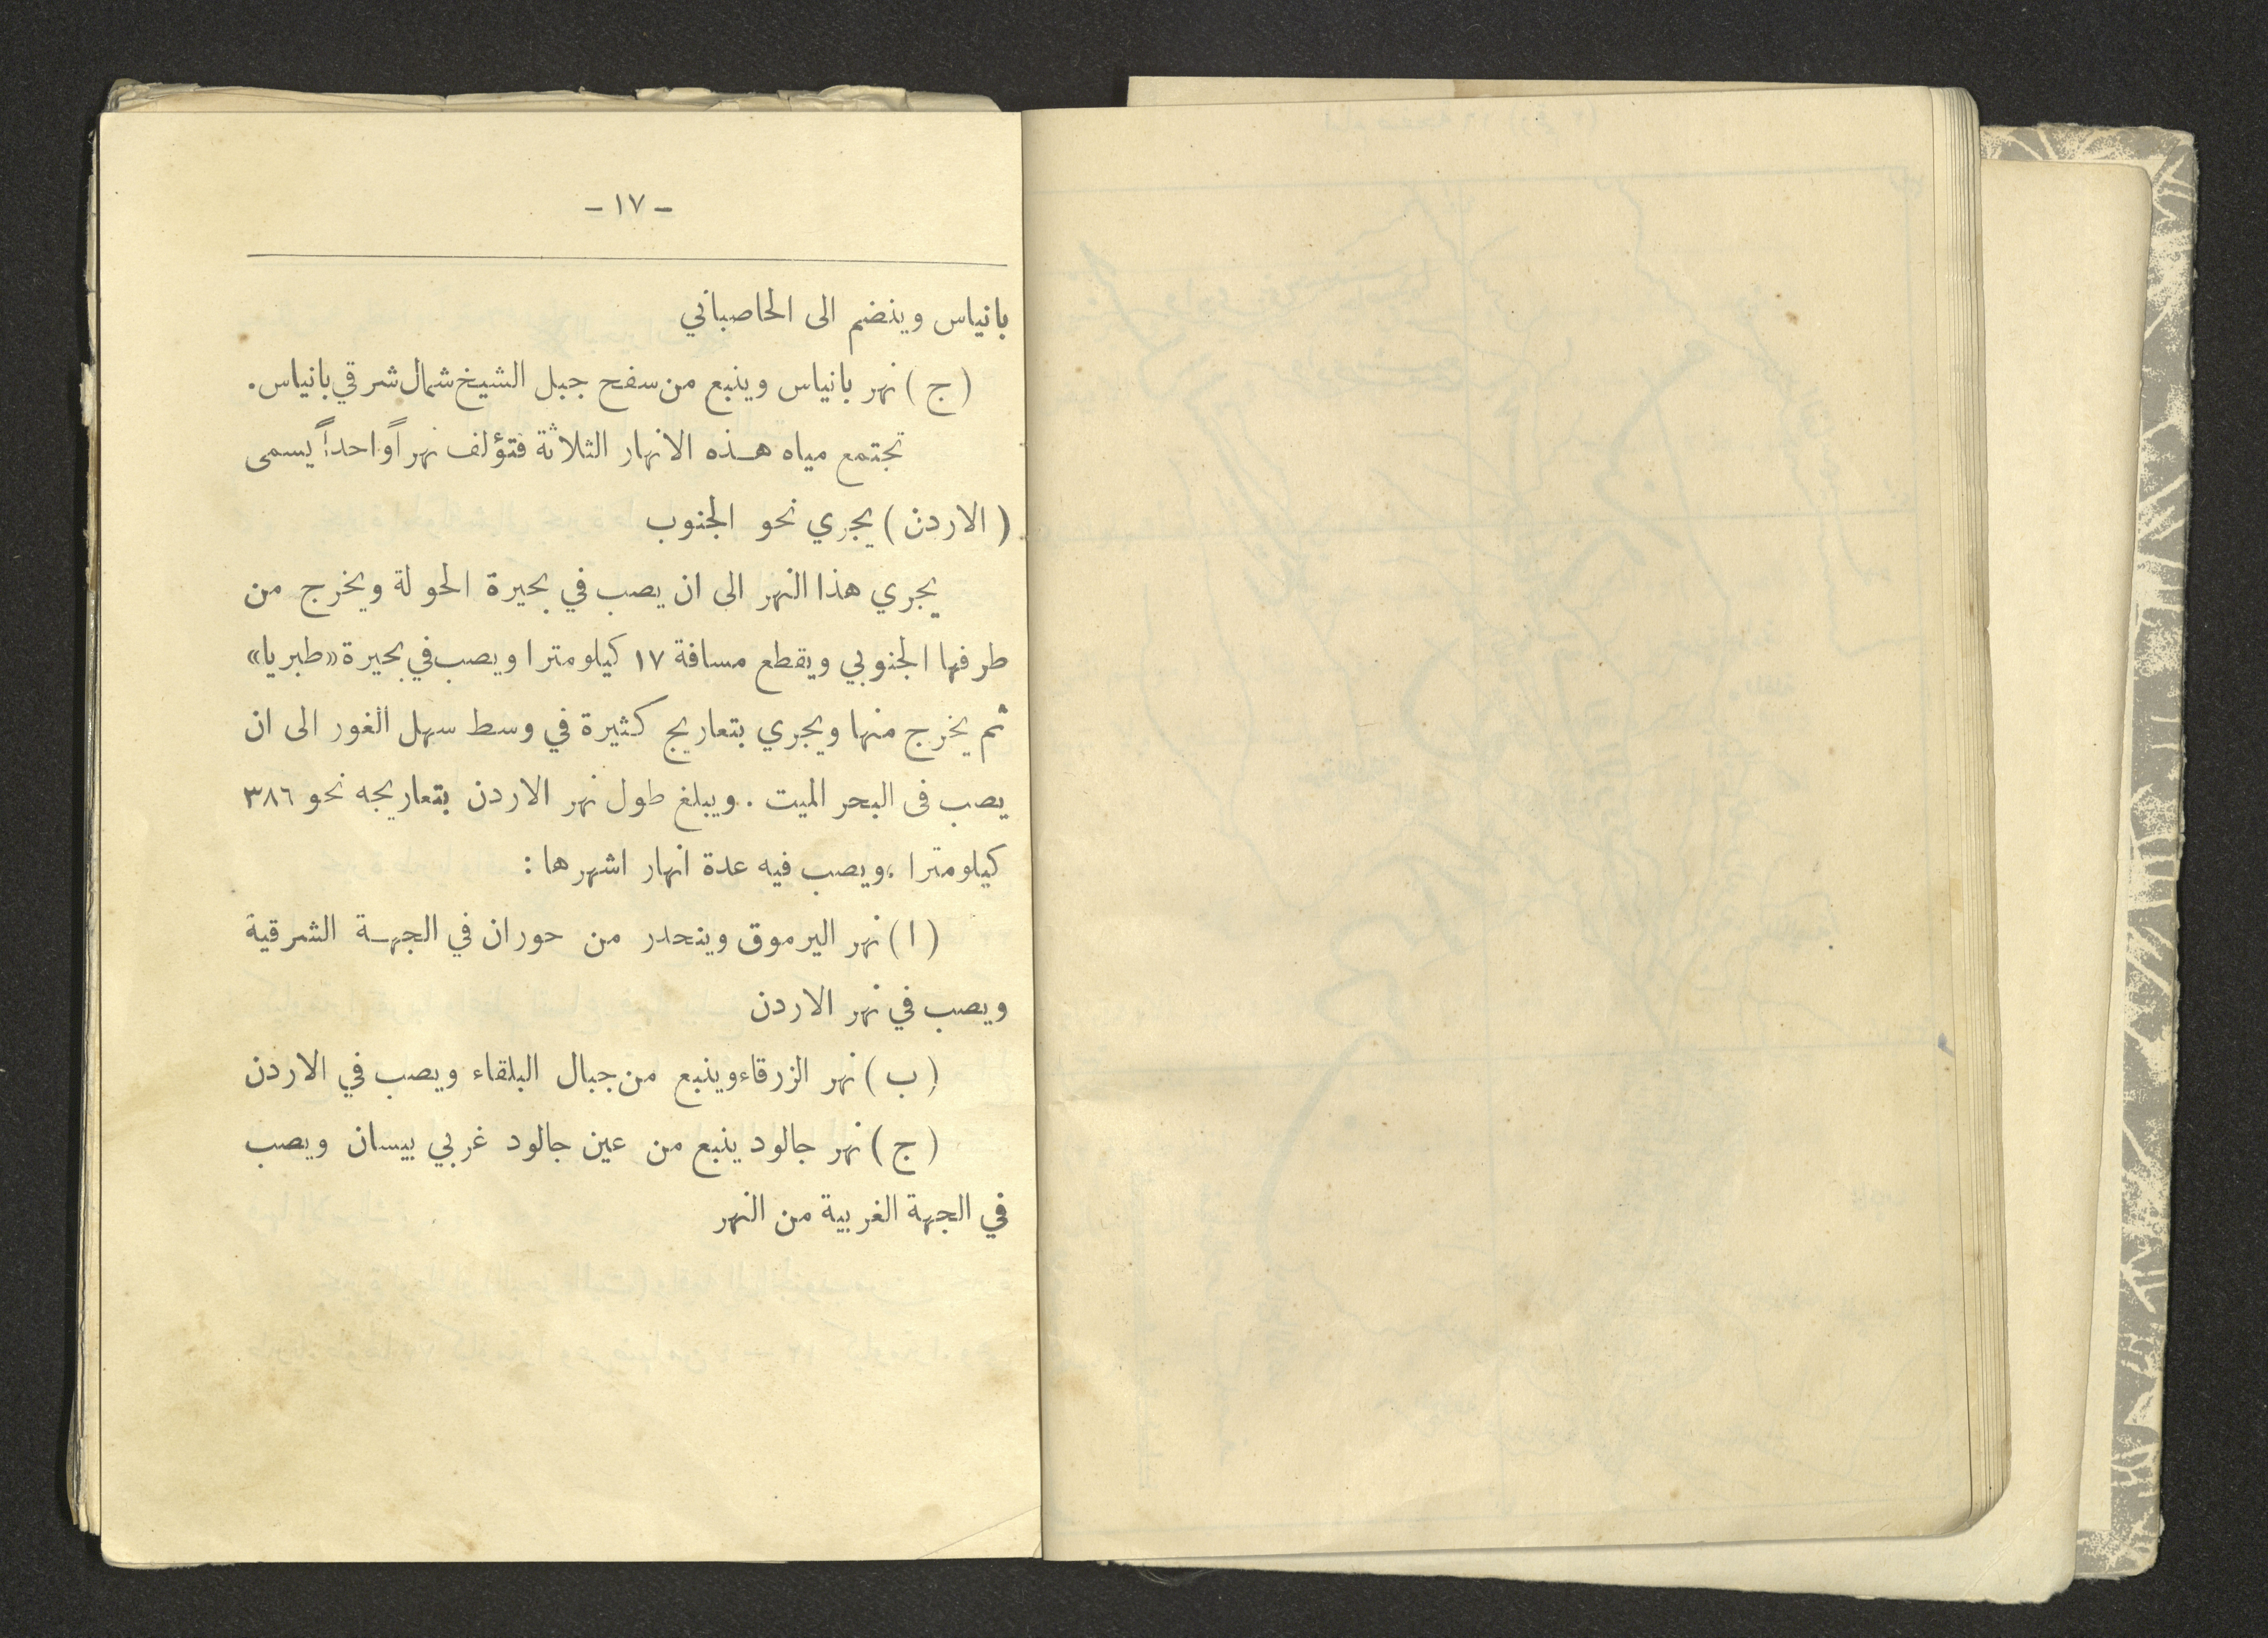 - ١٧ -
بانياس وينضم الى الحاصباني
(ج) نهر بانياس وينبع من سفح جبل الشيخ شمال شرقي بانياس.
تجتمع مياه هذه الانهار الثلاثة فتؤلف نهراً واحداً يسمى
(الاردن) يجري نحو الجنوب
يجري هذا النهر الى ان يصب في بحيرة الحولة ويخرج من
طرفها الجنوبي ويقطع مسافة ١٧ كيلومترا ويصب في بحيرة «طبريا»
ثم يخرج منها ويجري بتعاريج كثيرة في وسط سهل الغور الى ان
يصب فى البحر الميت. ويبلغ طول نهر الاردن بتعاريجه نحو ٣٨٦
كيلومترا، ويصب فيه عدة انهار اشهرها:
(ا) نهر اليرموق وينحدر من حوران في الجهة الشرقية
ويصب في نهر الاردن
(ب) نهر الزرقاء وينبع من جبال البلقاء ويصب في الاردن
(ج) نهر جالود ينبع من عين جالود غربي بيسان ويصب
في الجهة الغربية من النهر